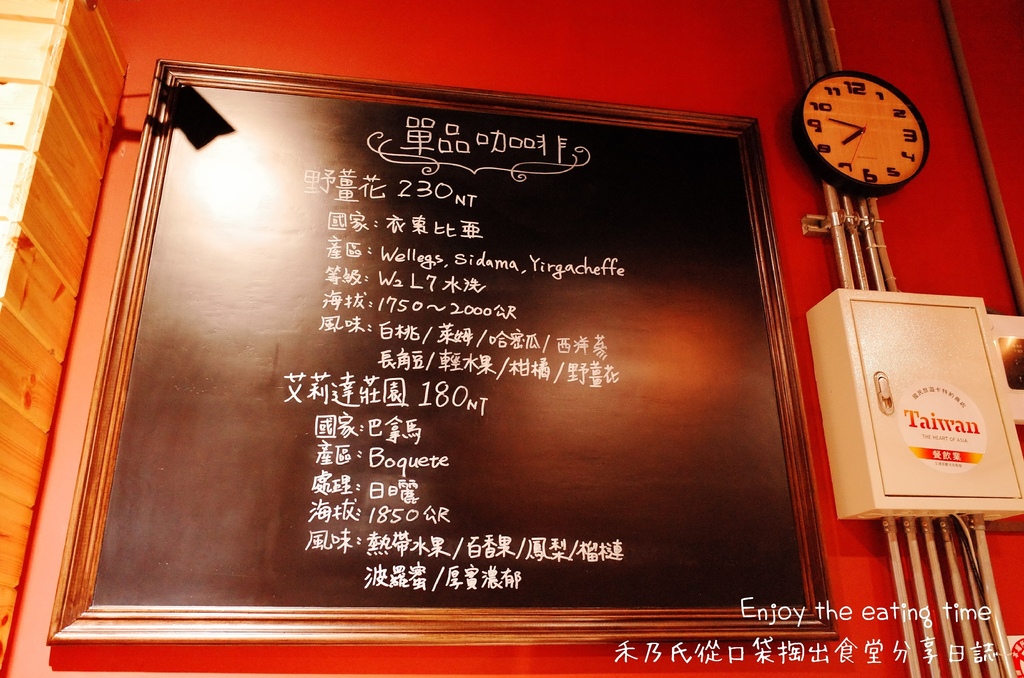 單品咖啡
野薑花 230NT
國家：衣索比亞
產區：Wellegs, Sidama, Yirgacheffe
等級：W2 L7 水洗
海拔：1750～2000公尺
風味：白桃/萊姆/哈密瓜/西洋蔘
長角豆/輕水果/柑橘/野薑花
艾莉達莊園 180NT
國家：巴拿馬
產區：Boquete
處理：日曬
海拔：1850公尺
風味：熱帶水果/百香果/鳳梨/榴槤
波羅蜜/厚實濃郁
12 1 2 3 4 5 6 7 8 9 10 11
Taiwan
THE HEART OF ASIA
餐飲業
Enjoy the eating time
禾乃氏從口袋掏出食堂分享日誌